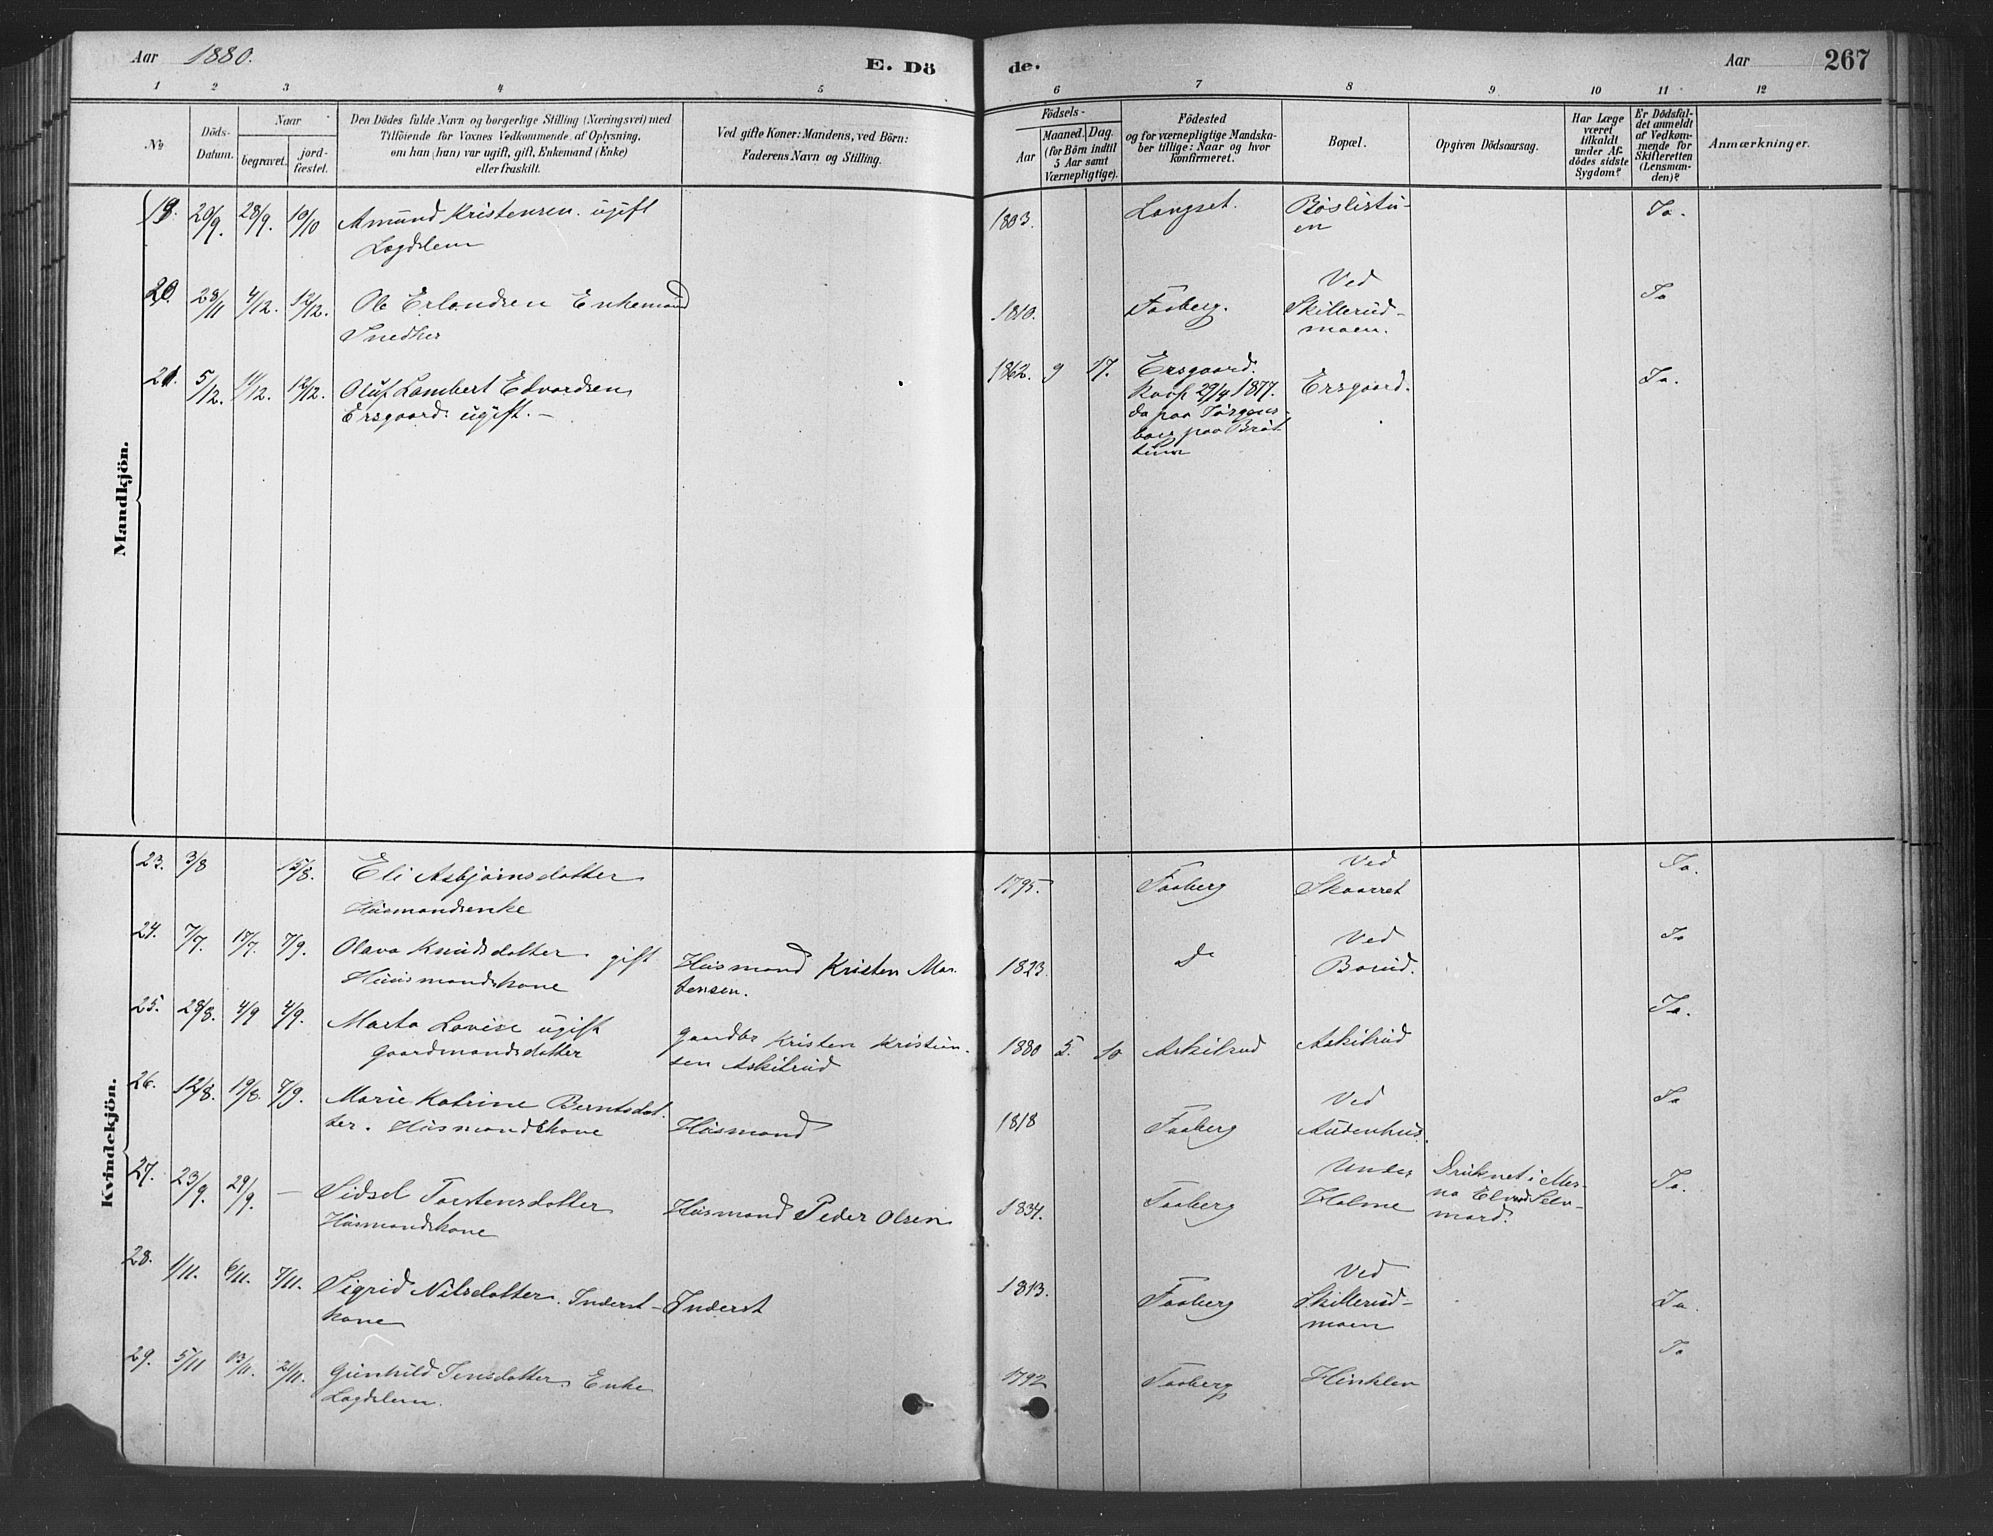 Aar 1880.
E. Dö
de.
Aar
267
1 2 3 4 5 6 7 8 9 10 11 12
No
Döds-
Datum.
Naar
begravet.
jord-
fæstet.
Den Dödes fulde Navn og borgerlige Stilling (Næringsvei) med
Tilföiende for Voxnes Vedkommende af Oplysning,
om han (hun) var ugift, gift, Enkemand (Enke)
eller fraskilt.
Ved gifte Koner: Mandens, ved Börn:
Faderens Navn og Stilling.
Födsels-
Aar
Maaned. Dag.
(for Börn indtil
5 Aar samt
Værnepligtige).
Födested
og for værnepligtige Mandska-
ber tillige: Naar og hvor
konfirmeret.
Bopæl.
Opgiven Dödsaarsag.
Har Læge
været
tilkaldt
under Af-
dödes sidste
Sygdom?
Er Dödsfal-
det anmeldt
af Vedkom-
mende for
Skifteretten
(Lensman-
den)?
Anmærkninger.
Mandkjön.
19. 20/9. 28/9. 10/10 Amund Kristensen. ugift
Lægdslem
1803. Langset. Böslistu-
en
Ja.
20. 28/11 4/12. 12/12. Ole Erlandsen Enkemand
Snedker
1810. Faaberg. Ved
Skillerud-
moen.
Ja
21. 5/12. 11/12. 12/12. Oluf Lambert Edvardsen
Ersgaard. ugift. —
1862. 9 17. Ersgaard.
Konf. 29/4 1877.
da paa
paa Bröt
tum
Ersgaard.
Ja.
Kvindekjön.
23. 3/8 15/8. Eli Asbjörnsdatter
Husmandsenke
1795. Faaberg Ved
Skaarret
Ja.
24. 7/7. 17/7. 7/9. Olava Knudsdatter gift
Husmandskone
Husmand Kristen Mar-
tensen.
1823. Do Ved
Borud.
Ja
25. 28/8. 4/9 4/9. Marta Lovise ugift
Gaardmandsdatter
Gaardbr Kristen Kristian-
sen Askilrud
1880 5. 10 Askilrud Askilrud
Ja.
26. 12/8. 19/8. 7/9. Marie Katrine Berntsdat-
ter. Husmandskone
Husmand
1818 Faaberg Ved
Audenhus.
Ja
27. 23/9. 29/9. — Sidsel Torstensdatter
Husmandskone
Husmand Peder Olsen
1834. Faaberg Under
Holme
Druknet i Mes-
na Elv Selv-
mord.
Ja.
28. 1/11. 6/11. 7/11. Sigrid Nilsdatter. Inderst-
kone
Inderst
1813. Faaberg Ved
Skillerud-
moen
Ja.
29. 5/11 13/11. 21/11. Gunhild Jensdatter. Enke
Lægdslem.
1792 Faaberg Hinklev
Ja